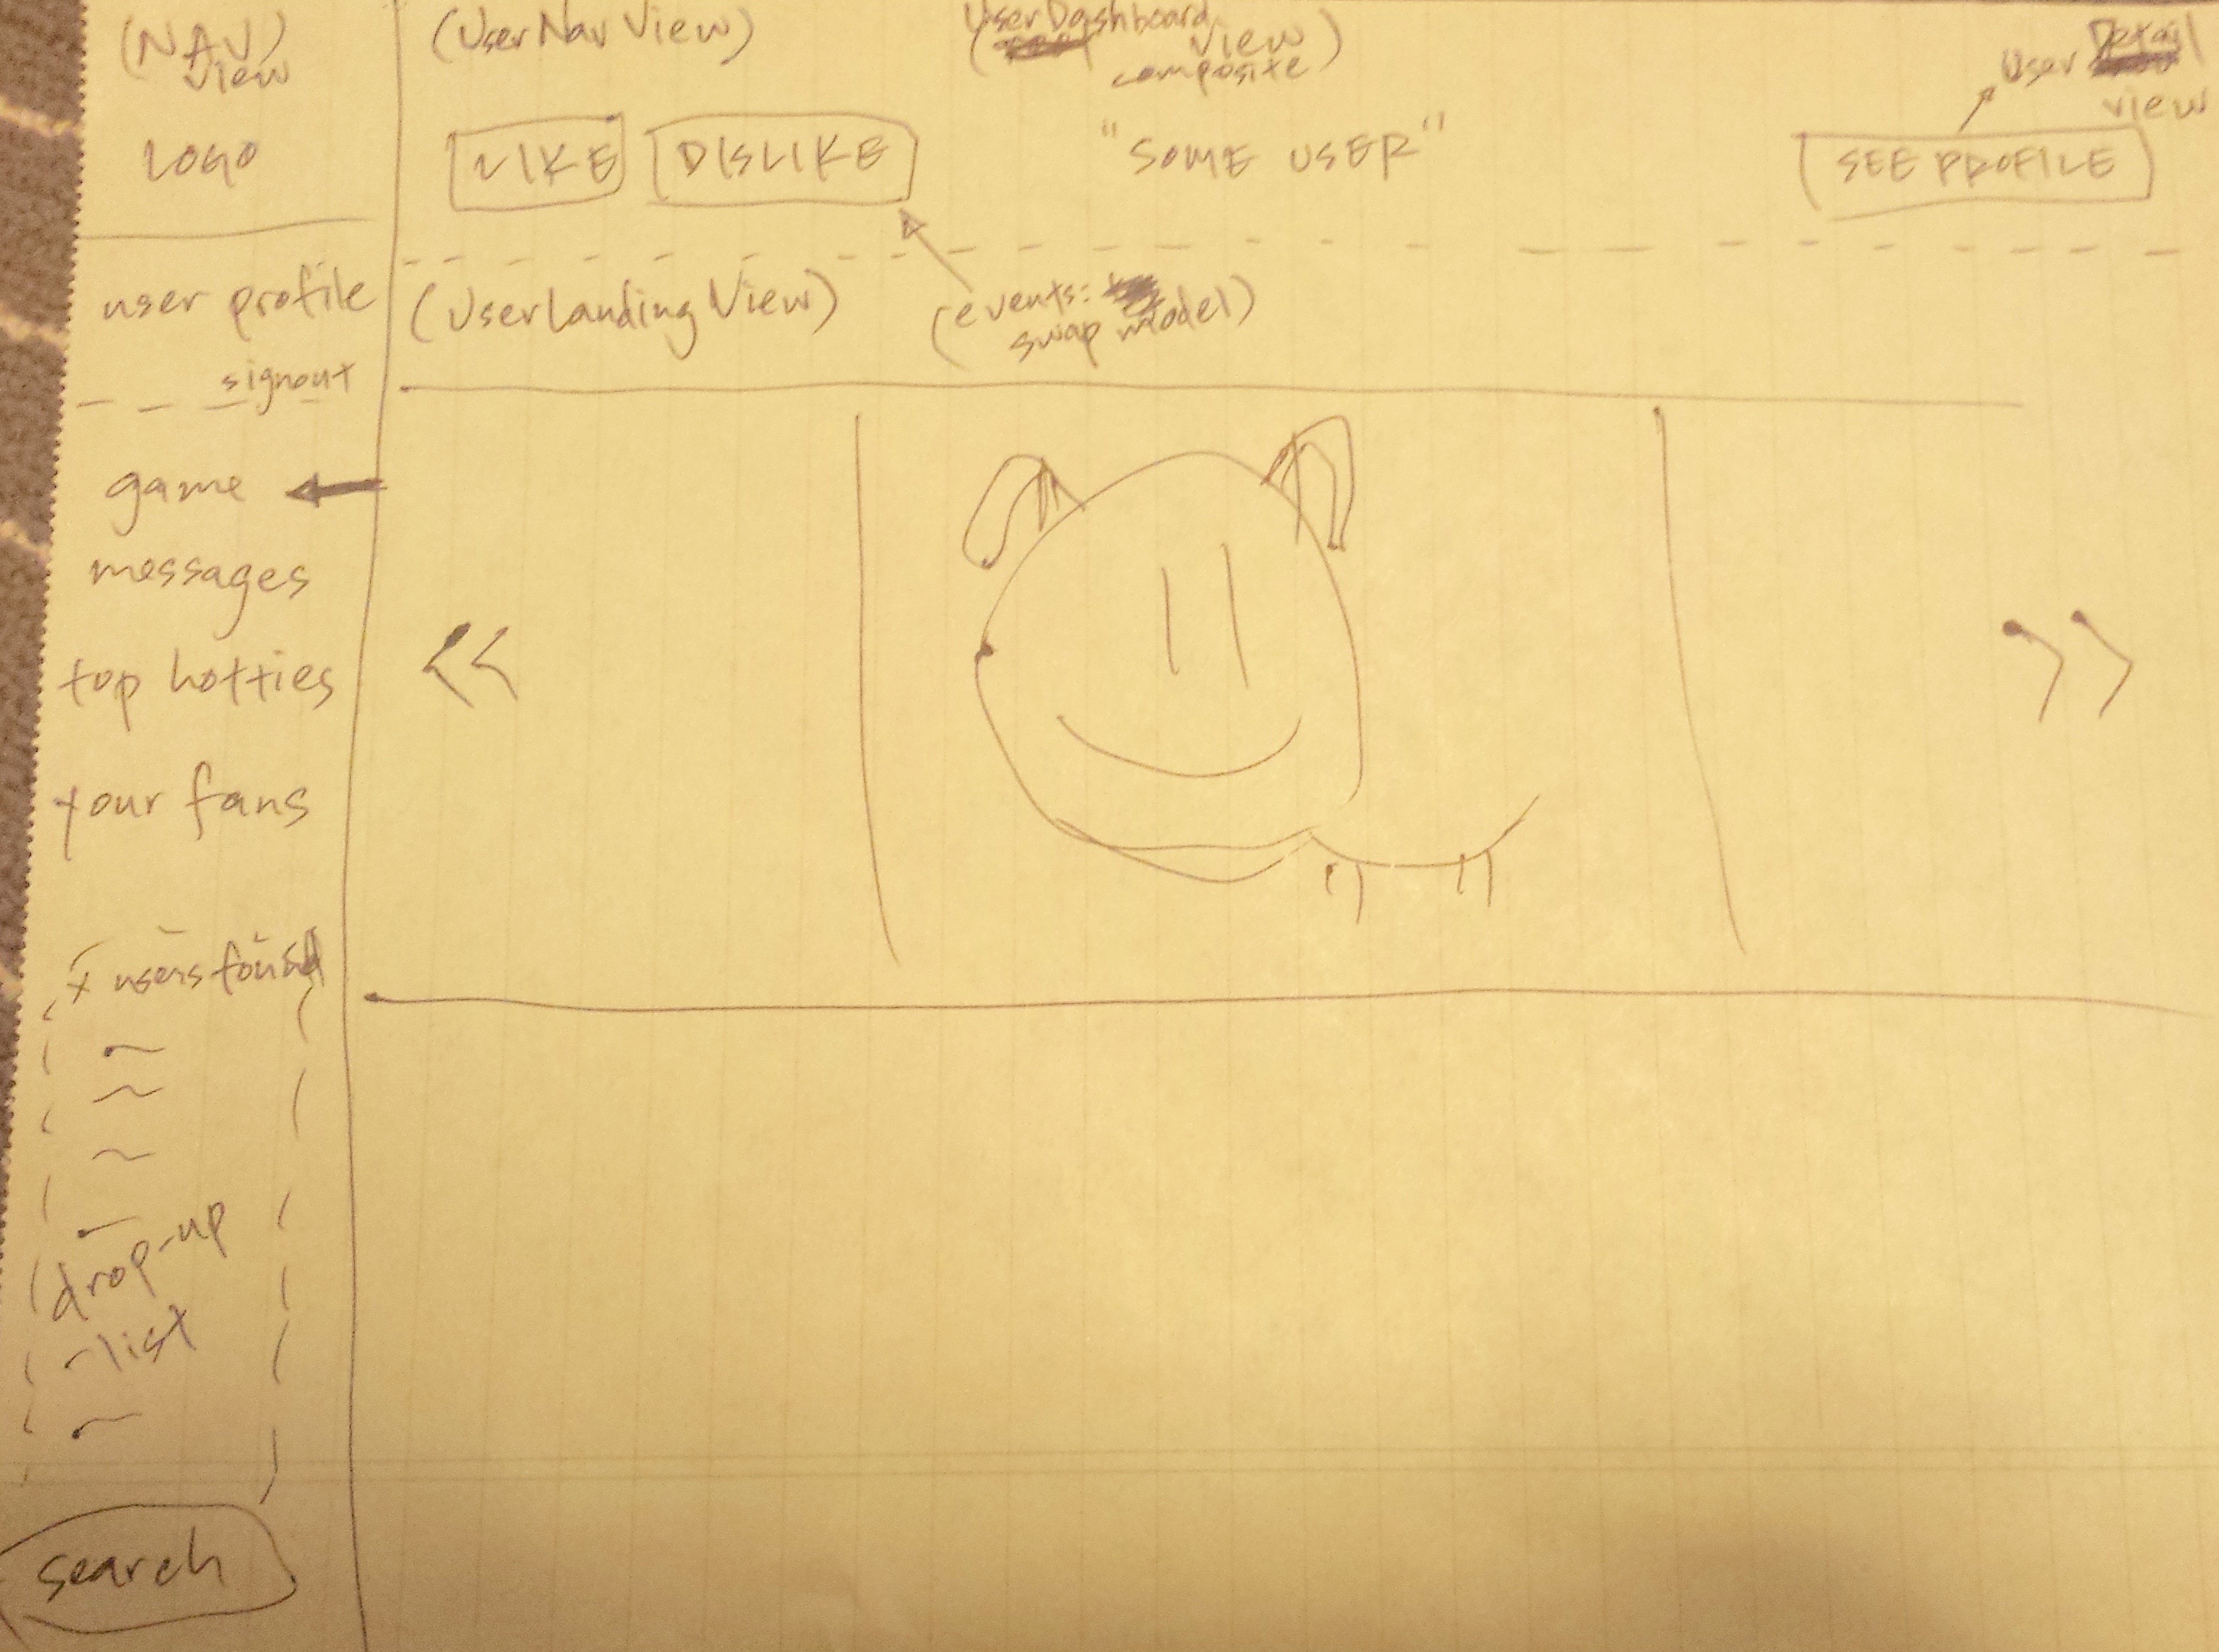 (NAV)
view
LOGO
user profile
signout
game
messages
top hotties
your fans
x users found
drop-up
list
search
(UserNavView)
UserDashboard
( View )
composite
User Detail
view
LIKE
DISLIKE
"SOME USER"
SEE PROFILE
(UserLandingView)
(events:
swap model)
<<
>>